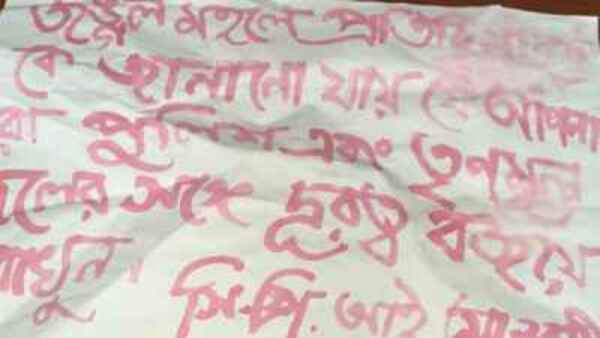 জঙ্গল মহলে
কে জানানো যায় যে আপনা
রা পুলিশ এবং তৃণমূল
দলের সঙ্গে দূরত্ব বজায়
রাখুন। সি.পি. আই